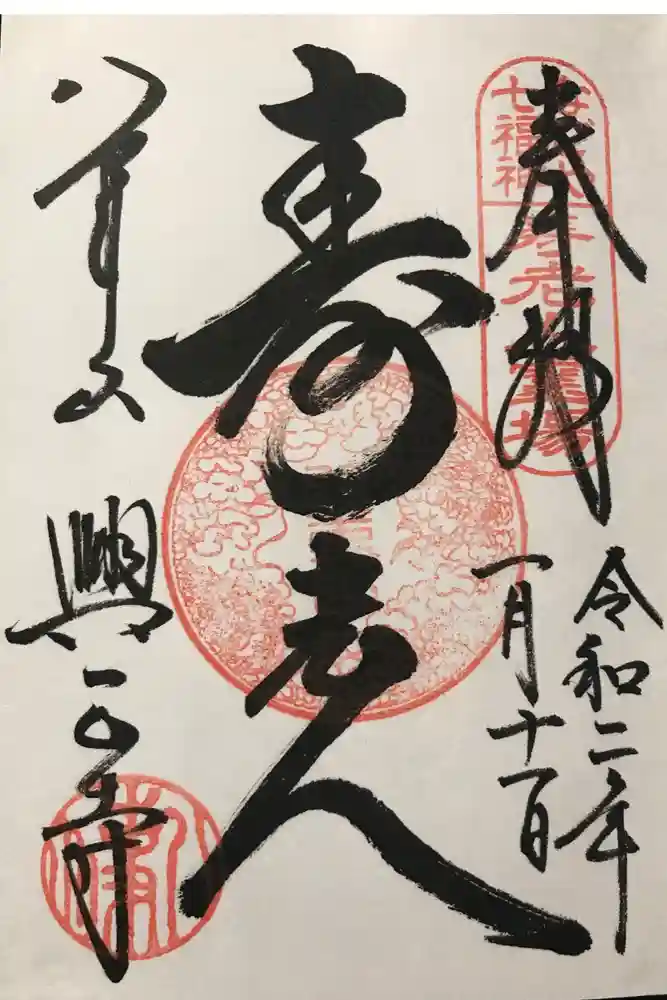 奉拝
七福神
老人霊場
令和二年
一月十一日
寿老人
八事山
興正寺